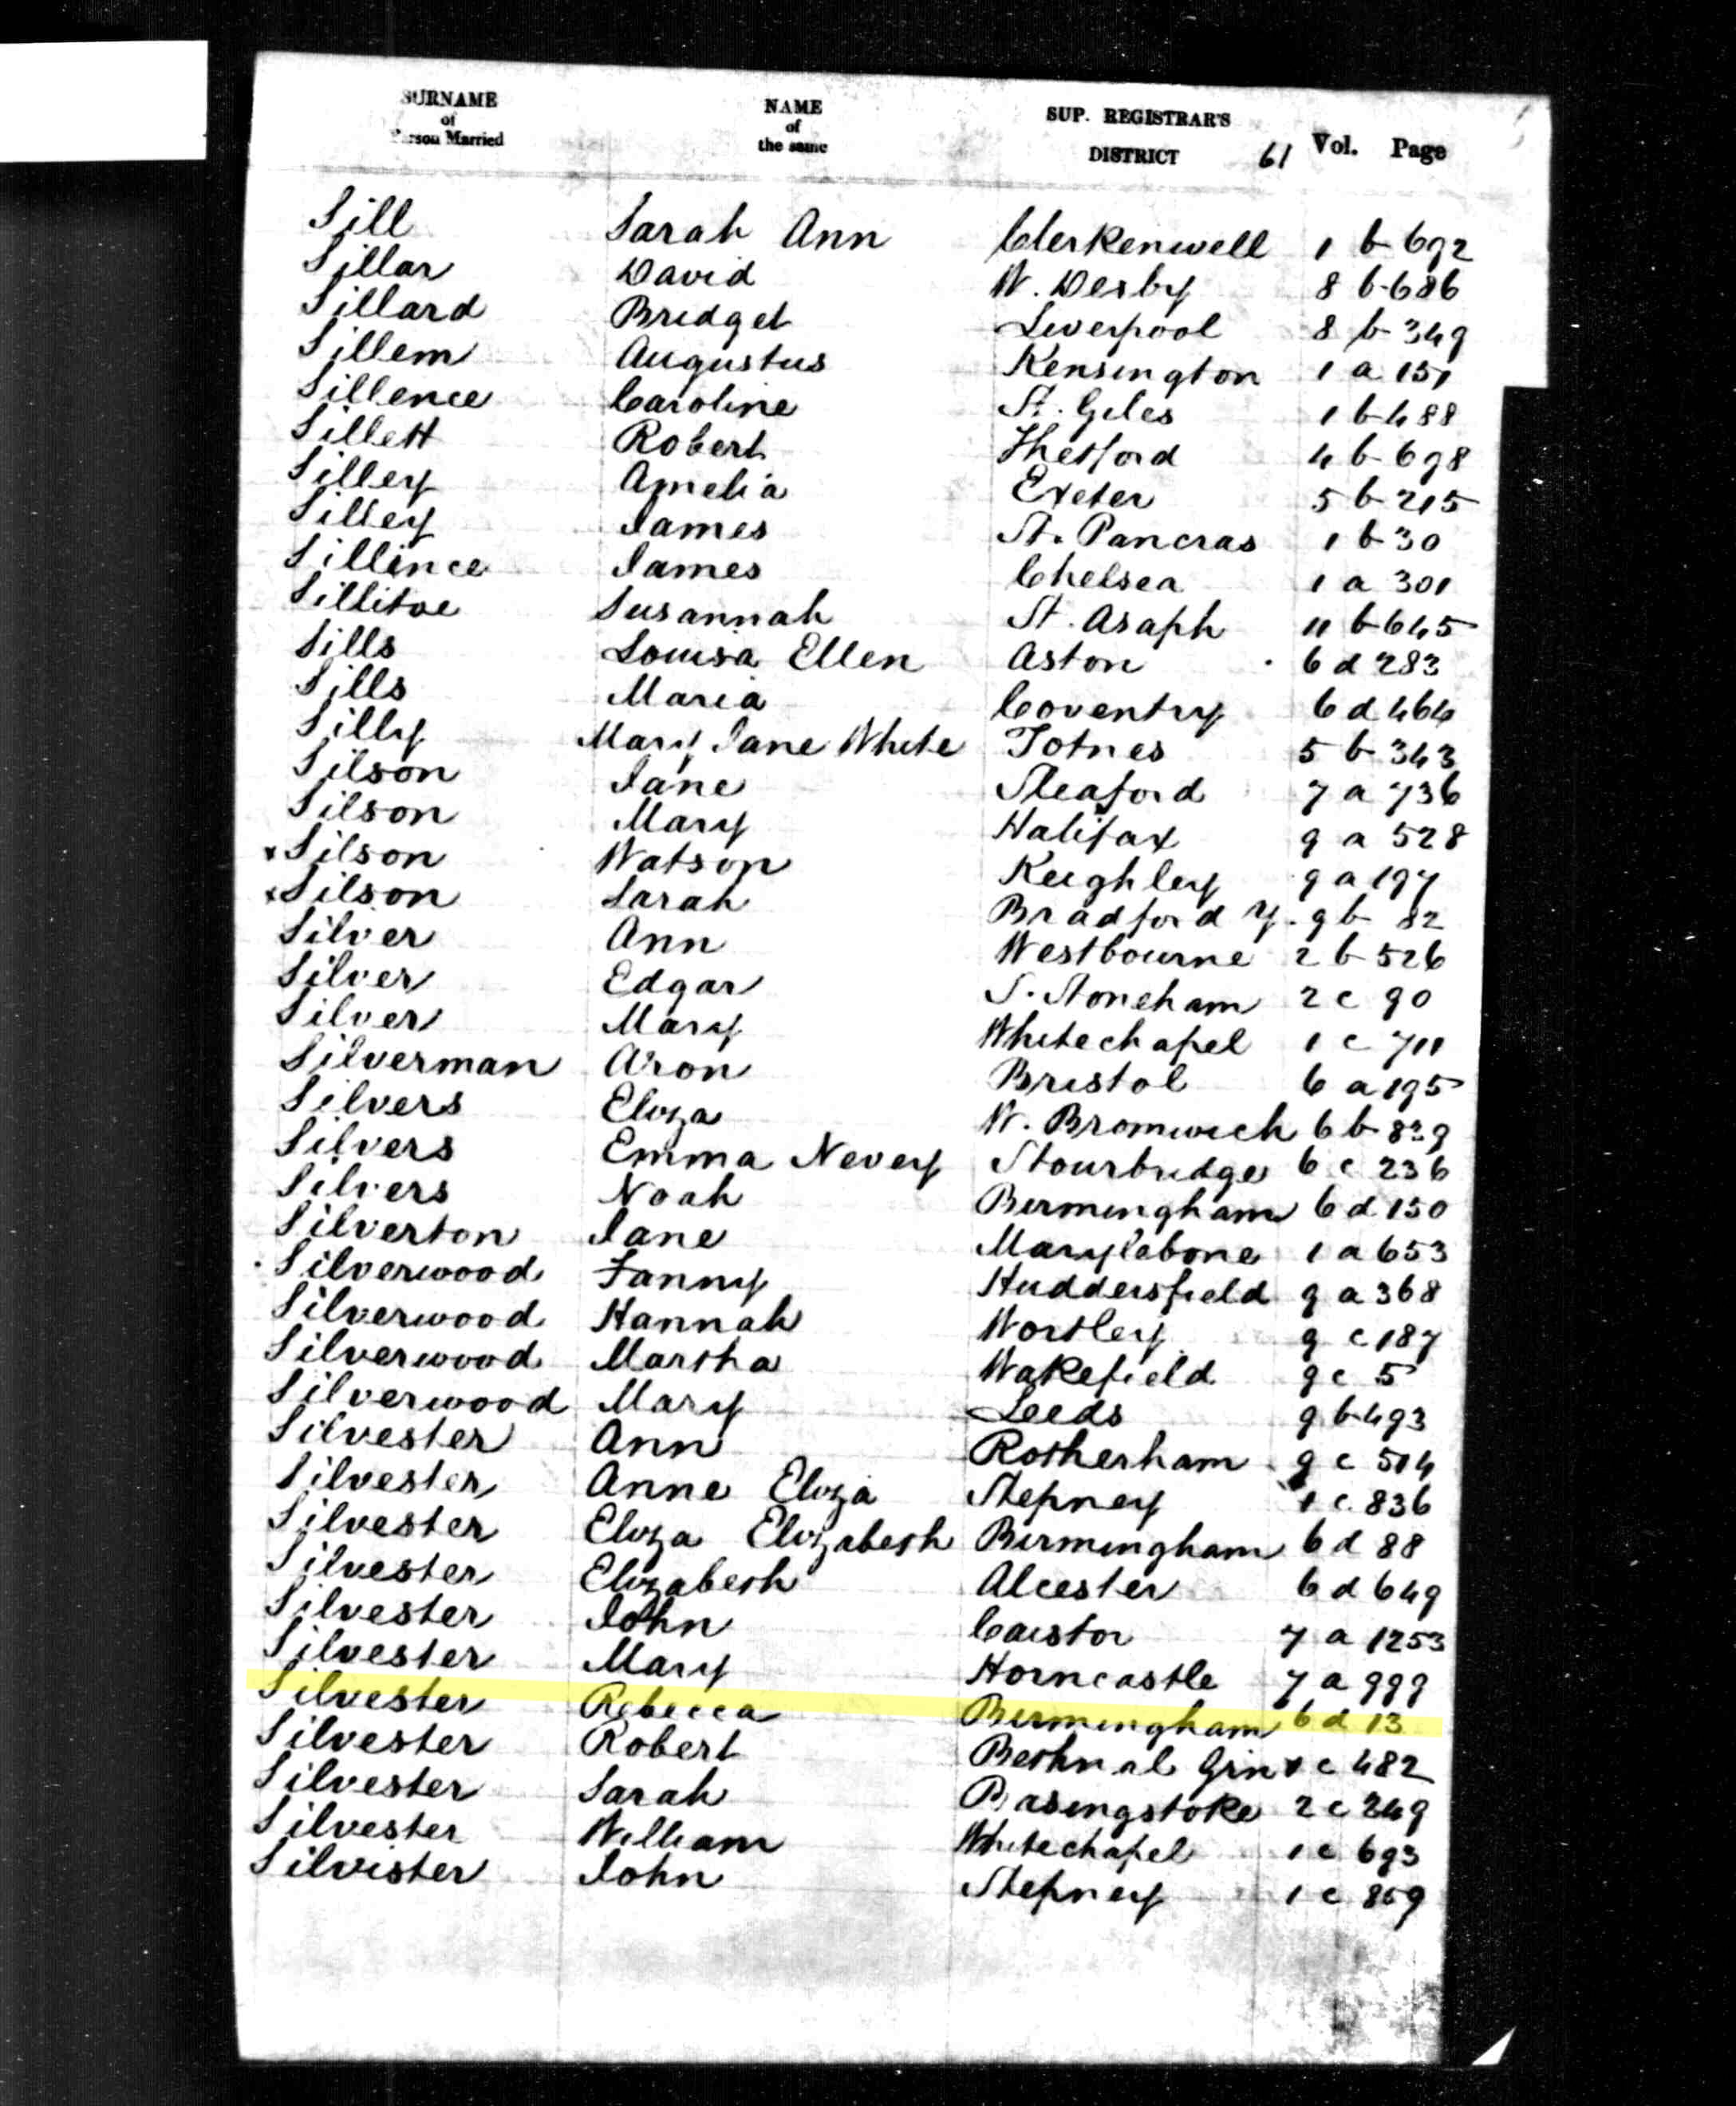 SURNAME of Person Married NAME of the same SUP. REGISTRAR'S DISTRICT 61 Vol. Page
Sill Sarah Ann Clerkenwell 1 b 692
Sillar David W. Derby 8 b 686
Sillard Bridget Liverpool 8 b 349
Sillem Augustus Kensington 1 a 151
Sillence Caroline St. Giles 1 b 488
Sillett Robert Thetford 4 b 698
Silley Amelia Exeter 5 b 215
Silley James St. Pancras 1 b 30
Sillince James Chelsea 1 a 301
Sillitoe Susannah St. Asaph 11 b 645
Sills Louisa Ellen Aston 6 d 283
Sills Maria Coventry 6 d 464
Silly Mary Jane White Totnes 5 b 343
Silson Jane Sleaford 7 a 736
Silson Mary Halifax 9 a 528
x Silson Watson Keighley 9 a 197
x Silson Sarah Bradford Y. 9 b 82
Silver Ann Westbourne 2 b 526
Silver Edgar S. Stoneham 2 c 90
Silver Mary Whitechapel 1 c 711
Silverman Aron Bristol 6 a 195
Silvers Eliza W. Bromwich 6 b 839
Silvers Emma Nevey Stourbridge 6 c 236
Silvers Noah Birmingham 6 d 150
Silverton Jane Marylebone 1 a 653
Silverwood Fanny Huddersfield 9 a 368
Silverwood Hannah Wortley 9 c 187
Silverwood Martha Wakefield 9 c 5
Silverwood Mary Leeds 9 b 493
Silvester Ann Rotherham 9 c 514
Silvester Anne Eliza Stepney 1 c 836
Silvester Eliza Elizabeth Birmingham 6 d 88
Silvester Elizabeth Alcester 6 d 649
Silvester John Caistor 7 a 1253
Silvester Mary Horncastle 7 a 999
Silvester Rebecca Birmingham 6 d 13
Silvester Robert Bethnal Grn 1 c 482
Silvester Sarah Basingstoke 2 c 249
Silvester William Whitechapel 1 c 693
Silvister John Stepney 1 c